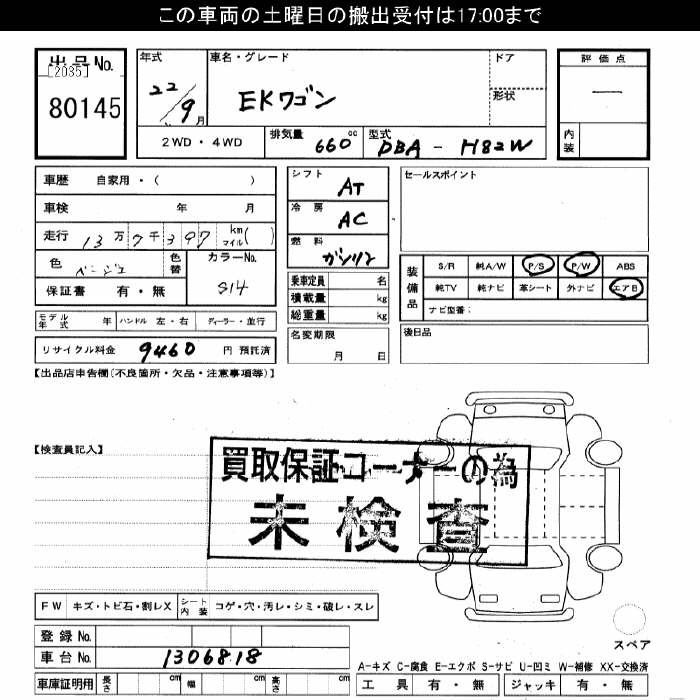 この車両の土曜日の搬出受付は17:00まで
出品No.
[2085]
80145
年式
22/9月
車名・グレード
EKワゴン
ドア
形状
評価点
一
内装
2WD・4WD
排気量 660cc
型式 DBA-H82W
車歴 自家用・( )
車検 年 月
走行 13万7千397 km マイル( )
色 ベージュ 色替
カラーNo. S14
保証書 有・無
シフト AT
冷房 AC
燃料 ガソリン
乗車定員 名
積載量 kg
総重量 kg
セールスポイント
装備品
S/R 純A/W P/S P/W ABS
純TV 純ナビ 革シート 外ナビ エアB
ナビ型番:
モデル年式 年 ハンドル 左・右 ディーラー・並行
名変期限 月 日
後日品
リサイクル料金 9460 円 預託済
【出品店申告欄(不良箇所・欠品・注意事項等)】
【検査員記入】
買取保証コーナーの為
未検査
FW キズ・トビ石・割レX シート内装 コゲ・穴・汚レ・シミ・破レ・スレ
登録No.
車台No. 1306818
スペア
A-キズ C-腐食 E-エクボ S-サビ U-凹ミ W-補修 XX-交換済
車庫証明用 長さ cm 幅 cm 高さ cm
工具 有・無 ジャッキ 有・無